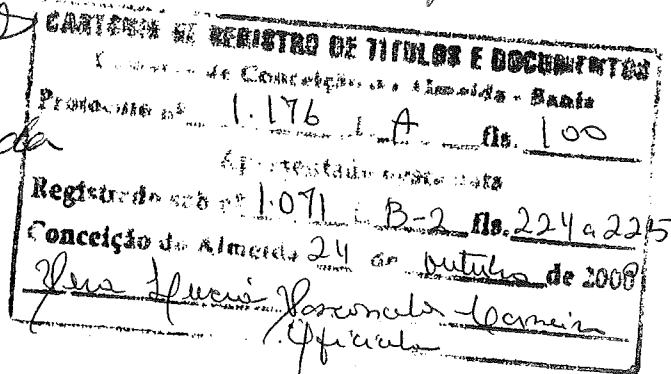 CARTÓRIO DE REGISTRO DE TITULOS E DOCUMENTOS
de Conceição do Almeida - Bahia
Protocolo nº 1.176 A fls. 100
da
Apresentado nesta data
Registrado sob nº 1.071 B-2 fls. 224 a 225
Conceição do Almeida 24 de outubro de 2008
Vera Lucia Vasconcelos Carneiro
Oficiala